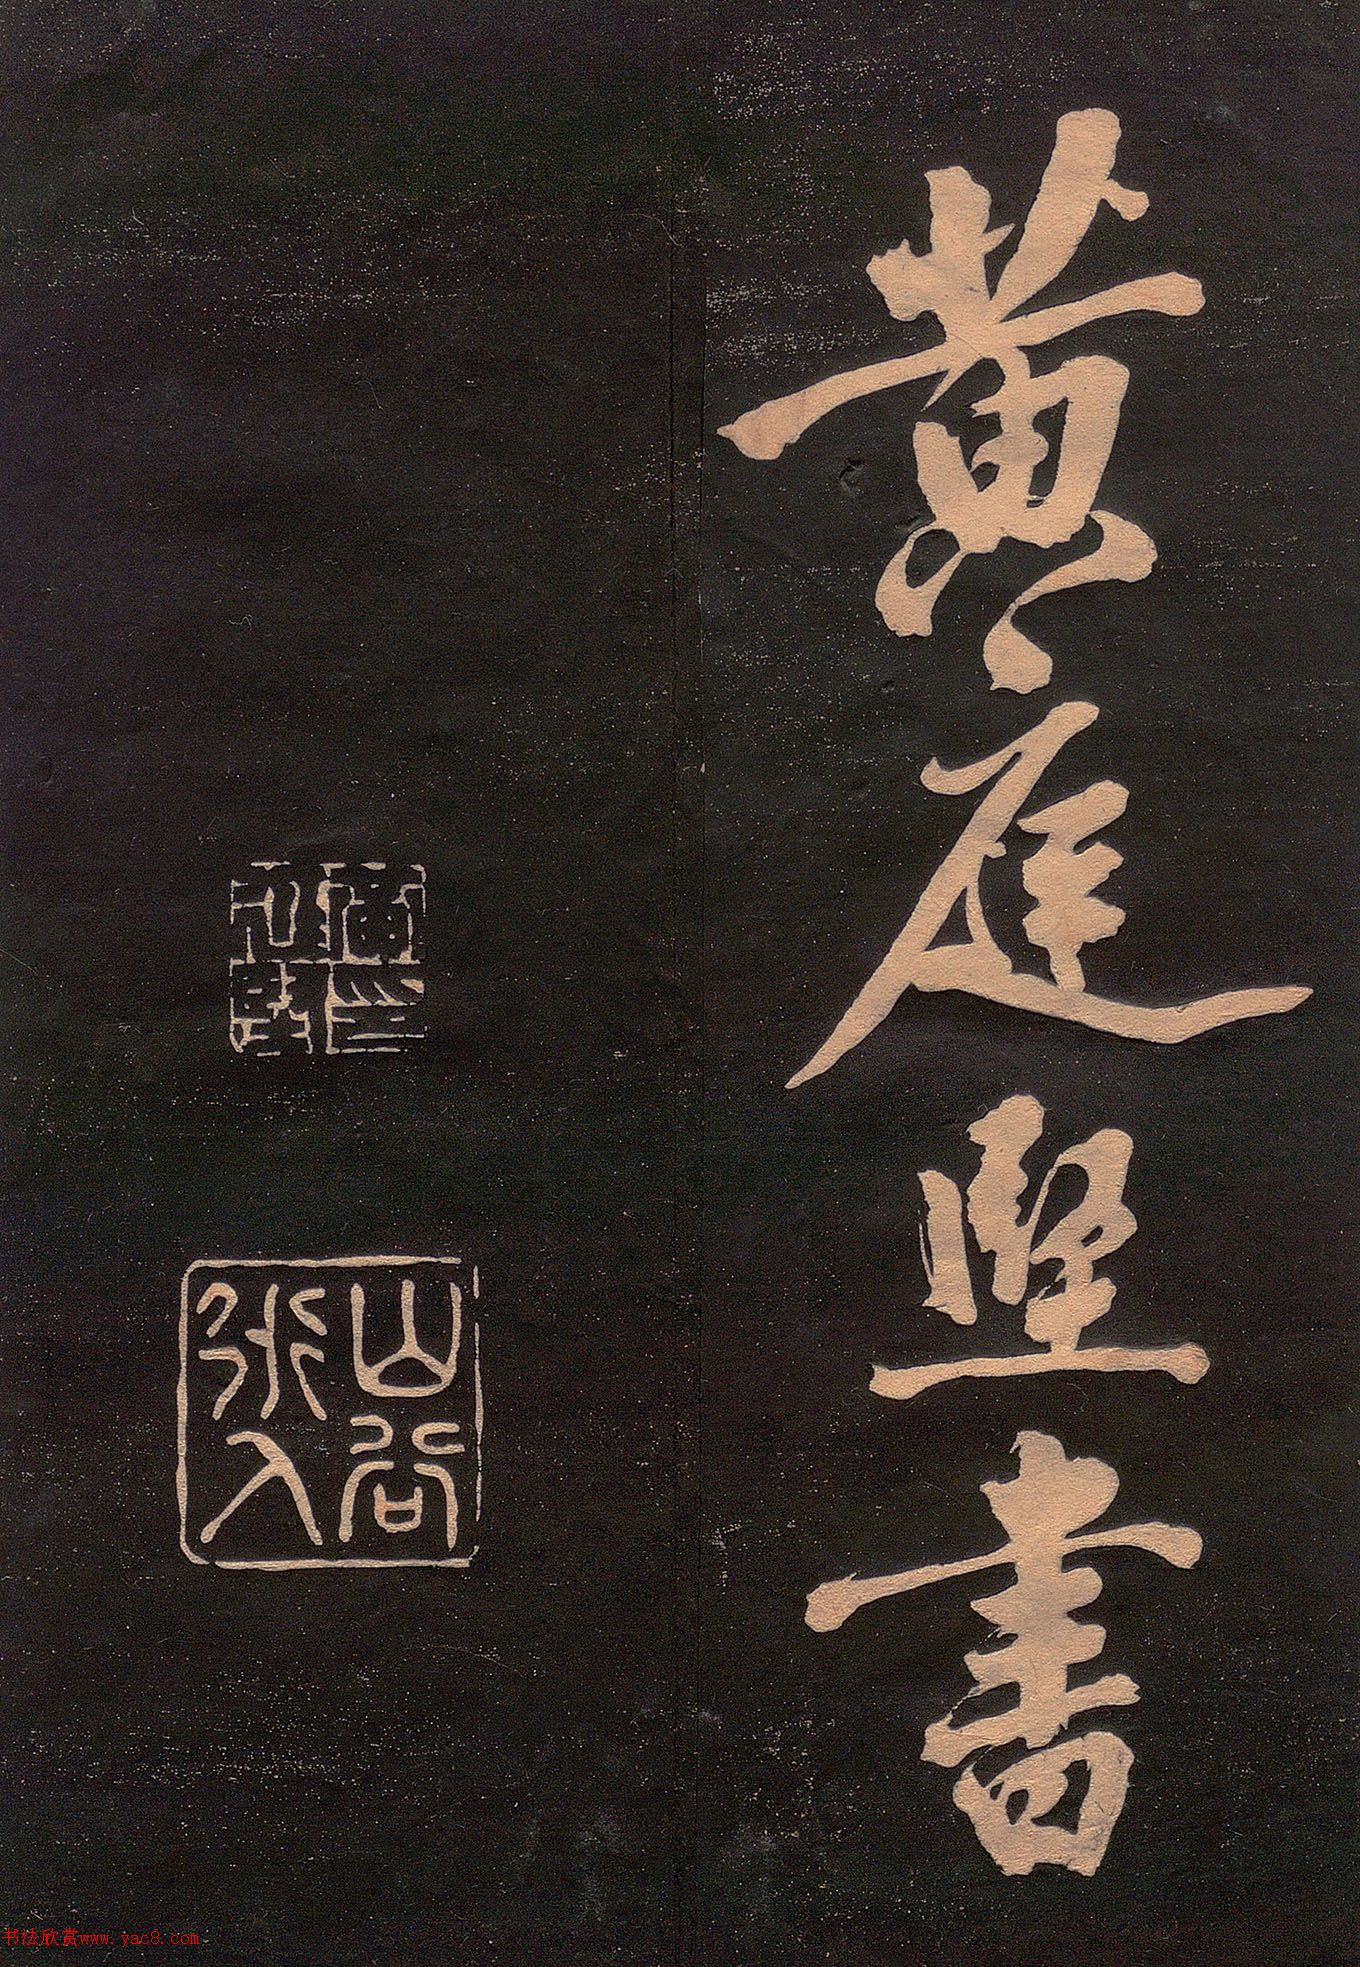 黄庭堅書
山谷道人
书法欣赏www.yac8.com